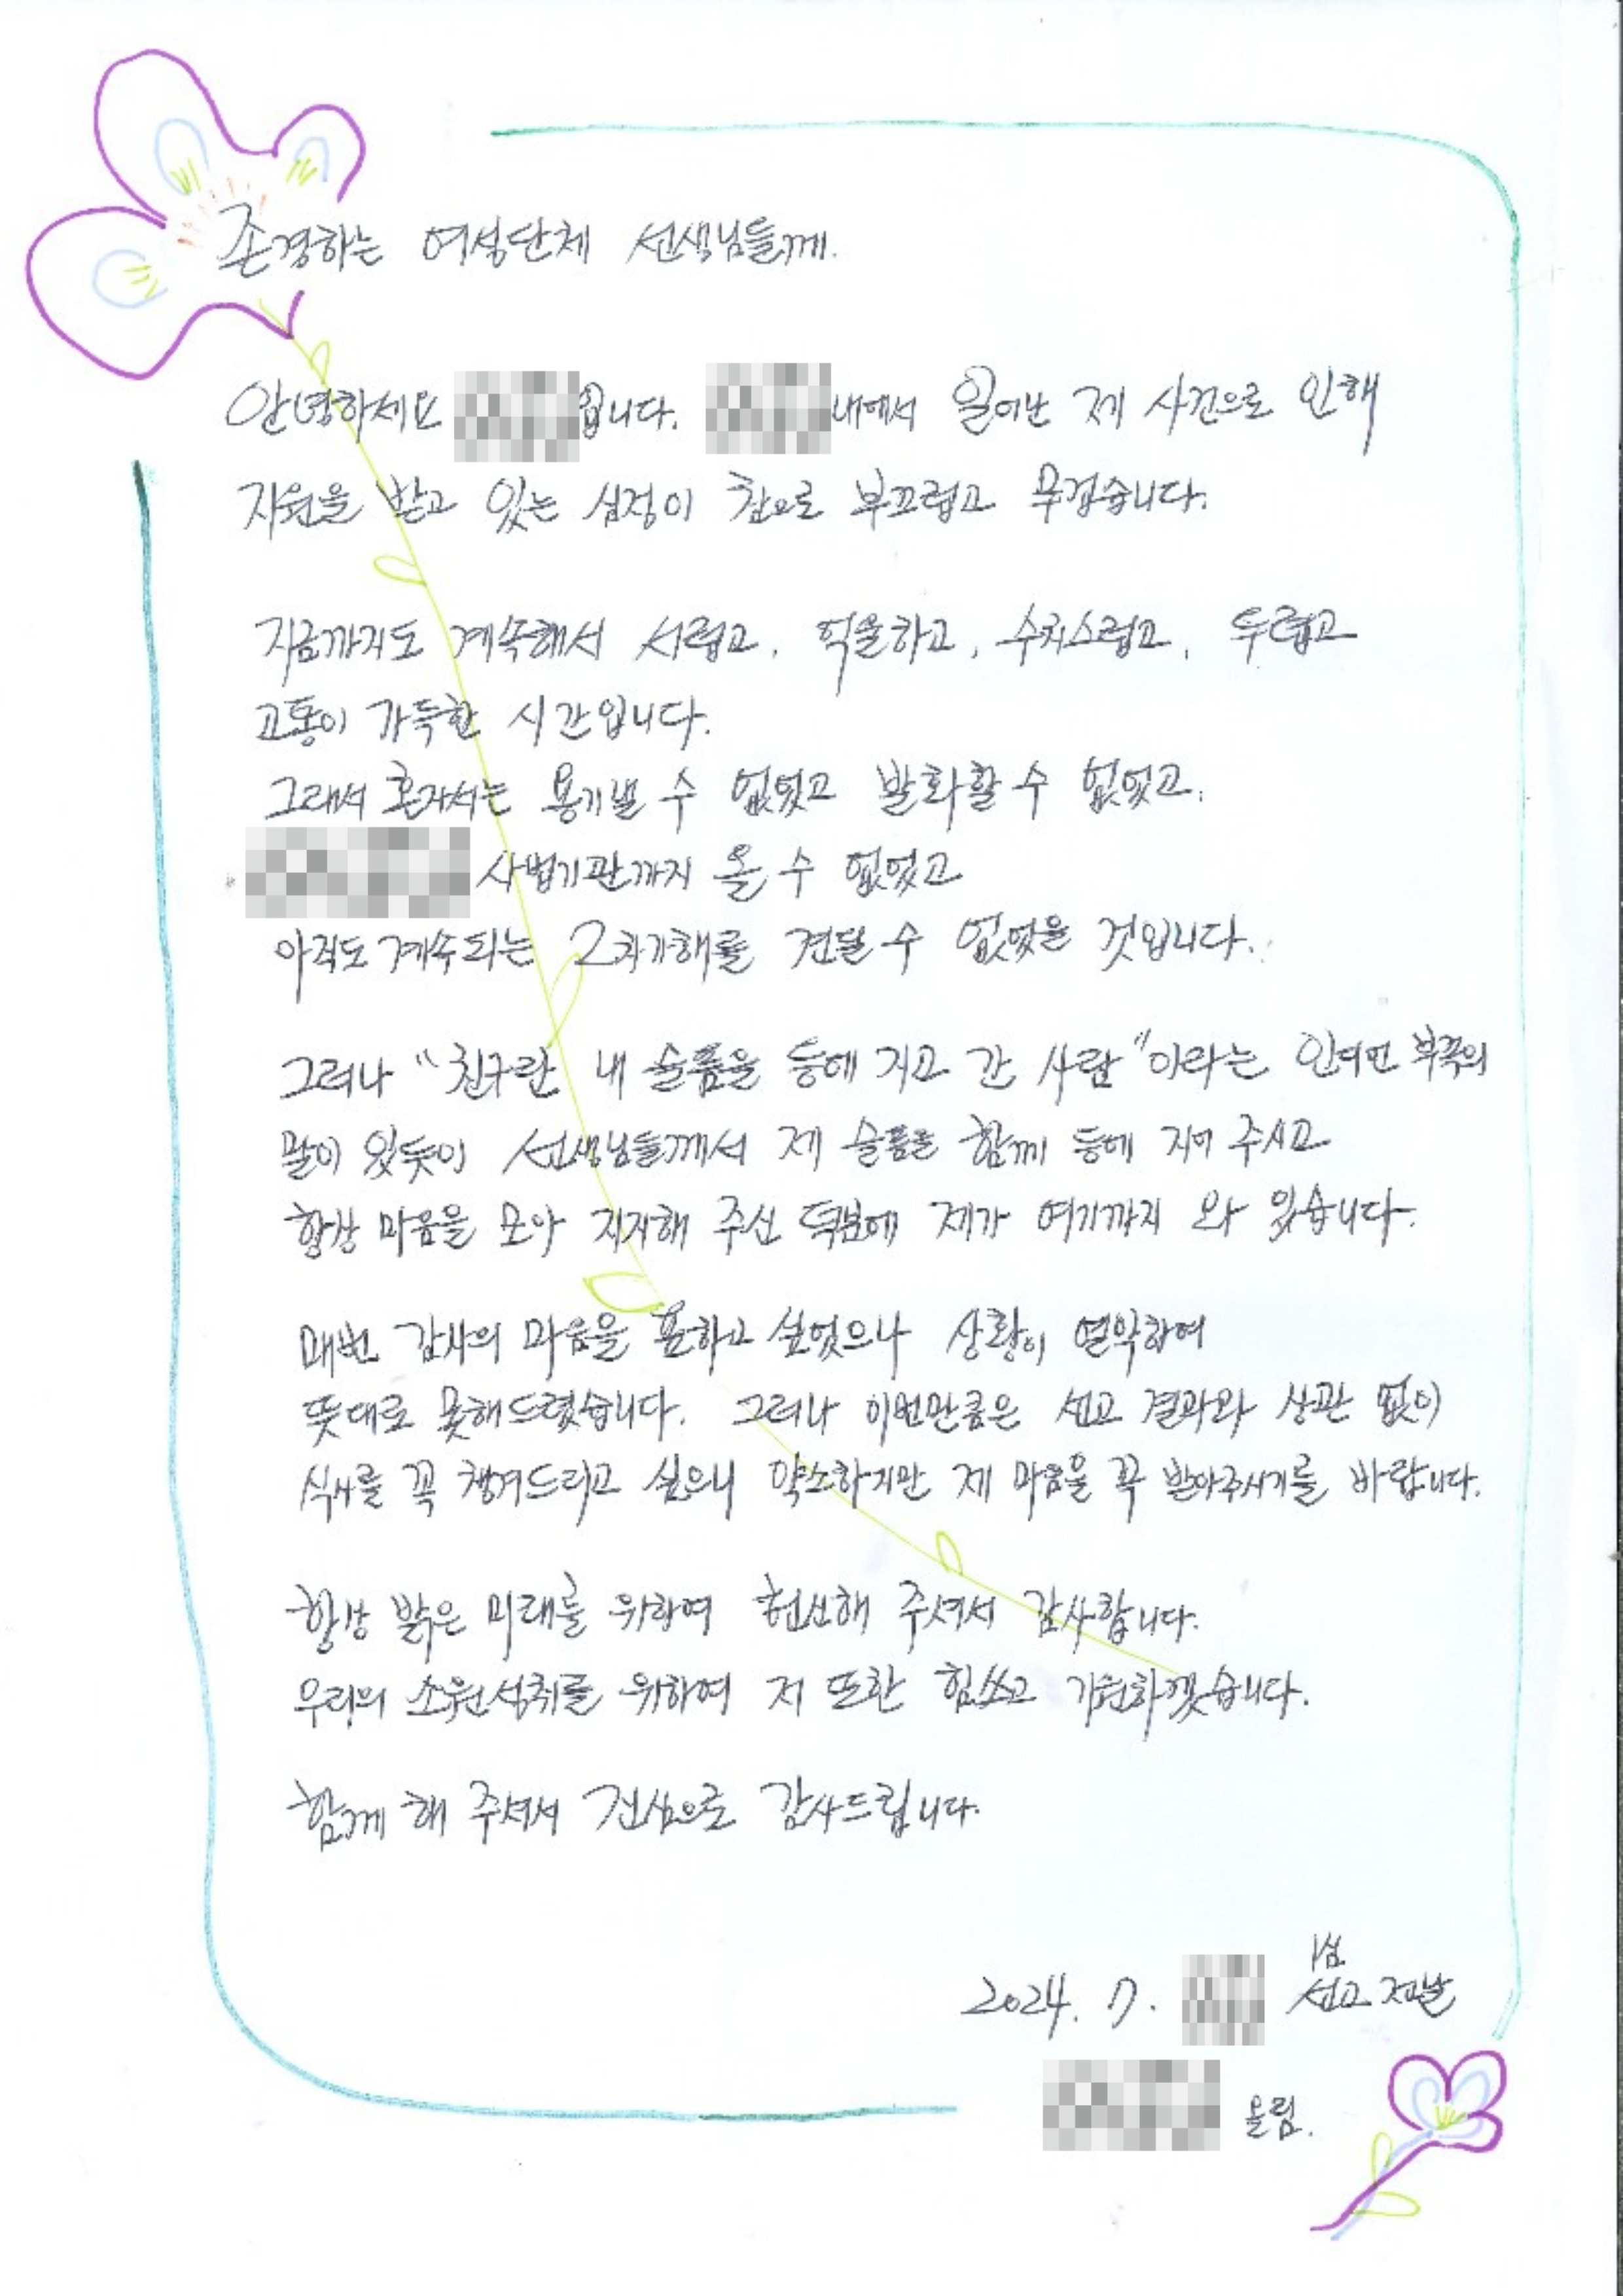 존경하는 여성단체 선생님들께.
안녕하세요 입니다. 내에서 일어난 제 사건으로 인해
지원을 받고 있는 심정이 참으로 부끄럽고 무겁습니다.
지금까지도 계속해서 서럽고, 억울하고, 수치스럽고, 두렵고
고통이 가득한 시간입니다.
그래서 혼자서는 용기낼 수 없었고 발화할 수 없었고,
사법기관까지 올 수 없었고
아직도 계속되는 2차가해를 견딜 수 없었을 것입니다.
그러나 "친구란 내 슬픔을 등에 지고 간 사람"이라는 인디언 부족의
말이 있듯이 선생님들께서 제 슬픔을 함께 등에 지어 주시고
항상 마음을 모아 지지해 주신 덕분에 제가 여기까지 와 있습니다.
매번 감사의 마음을 표하고 싶었으나 상황이 열악하여
뜻대로 못해드렸습니다. 그러나 이번만큼은 선고 결과와 상관 없이
식사를 꼭 챙겨드리고 싶으니 약소하지만 제 마음을 꼭 받아주시기를 바랍니다.
항상 밝은 미래를 위하여 헌신해 주셔서 감사합니다.
우리의 소원성취를 위하여 저 또한 힘쓰고 기원하겠습니다.
함께 해 주셔서 진심으로 감사드립니다.
2024. 7. 1심 선고 전날
올림.